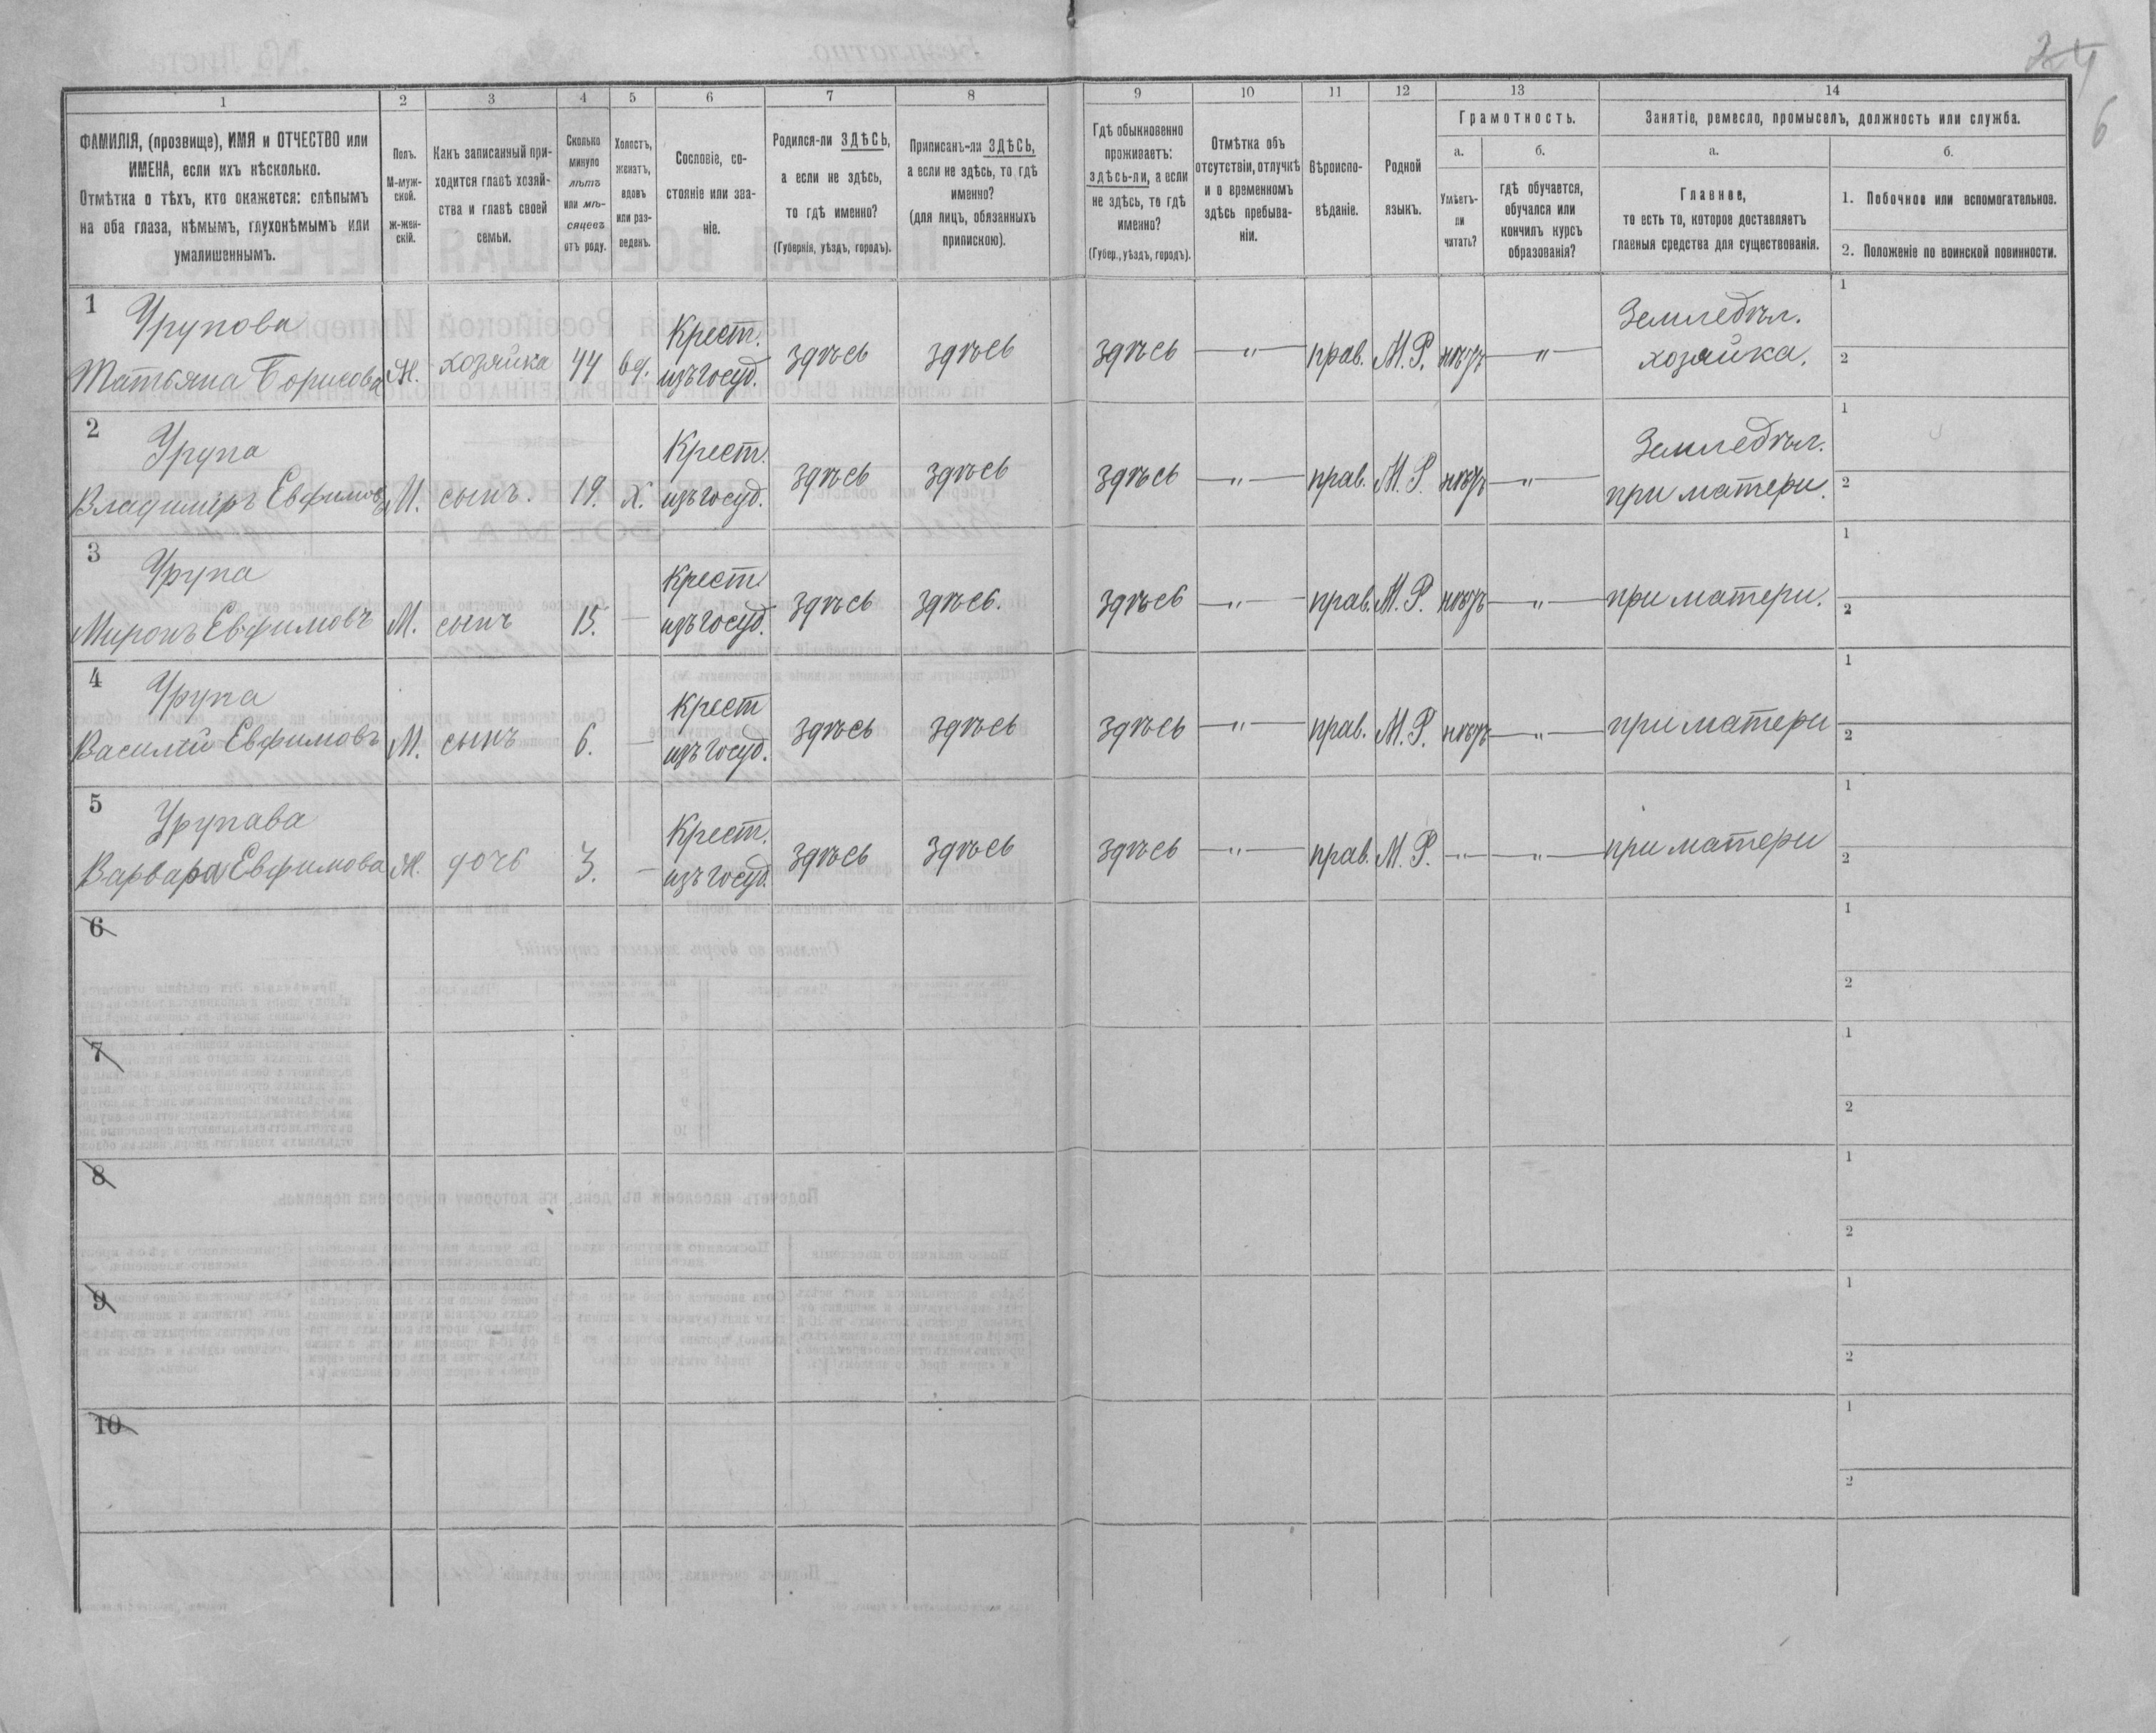 24
6
1 2 3 4 5 6 7 8 9 10 11 12 13 14
ФАМИЛІЯ, (прозвище), ИМЯ и ОТЧЕСТВО или
ИМЕНА, если ихъ нѣсколько.
Отмѣтка о тѣхъ, кто окажется: слѣпымъ
на оба глаза, нѣмымъ, глухонѣмымъ или
умалишеннымъ.
Полъ.
М-муж-
ской.
Ж-жен-
скій.
Какъ записанный при-
ходится главѣ хозяй-
ства и главѣ своей
семьи.
Сколько
минуло
лѣтъ
или мѣ-
сяцевъ
отъ роду.
Холостъ,
женатъ,
вдовъ
или раз-
веденъ.
Сословіе, со-
стояніе или зва-
ніе.
Родился-ли ЗДѢСЬ,
а если не здѣсь,
то гдѣ именно?
(Губернія, уѣздъ, городъ).
Приписанъ-ли ЗДѢСЬ,
а если не здѣсь, то гдѣ
именно?
(для лицъ, обязанныхъ
припискою).
Гдѣ обыкновенно
проживаетъ:
здѣсь-ли, а если
не здѣсь, то гдѣ
именно?
(Губер., уѣздъ, городъ).
Отмѣтка объ
отсутствіи, отлучкѣ
и о временномъ
здѣсь пребыва-
ніи.
Вѣроиспо-
вѣданіе.
Родной
языкъ.
Грамотность.
а.
Умѣетъ-
ли
читать?
б.
гдѣ обучается,
обучался или
кончилъ курсъ
образованія?
Занятіе, ремесло, промыселъ, должность или служба.
а.
Главное,
то есть то, которое доставляетъ
главныя средства для существованія.
б.
1. Побочное или вспомогательное.
2. Положеніе по воинской повинности.
1 Урупова Крест. Земледѣл. 1
Татьяна Борисова Ж. хозяйка 44 вд. изъ госуд. здѣсь здѣсь здѣсь — " — прав. М. Р. нѣтъ — " — хозяйка. 2
2 Урупа Крест. Земледѣл. 1
Владиміръ Евфимовъ М. сынъ. 19. х. изъ госуд. здѣсь здѣсь здѣсь — " — прав. М. Р. нѣтъ — " — при матери. 2
3 Урупа Крест. 1
Миронъ Евфимовъ М. сынъ 15. — изъ госуд. здѣсь здѣсь. здѣсь — " — прав. М. Р. нѣтъ — " — при матери. 2
4 Урупа Крест 1
Василій Евфимовъ М. сынъ 6. — изъ госуд. здѣсь здѣсь здѣсь — " — прав. М. Р. нѣтъ — " — при матери 2
5 Урупава Крест. 1
Варвара Евфимова Ж. дочь 3. — изъ госуд. здѣсь здѣсь здѣсь — " — прав. М. Р. — " — — " — при матери 2
6 1
2
7 1
2
8 1
2
9 1
2
10 1
2